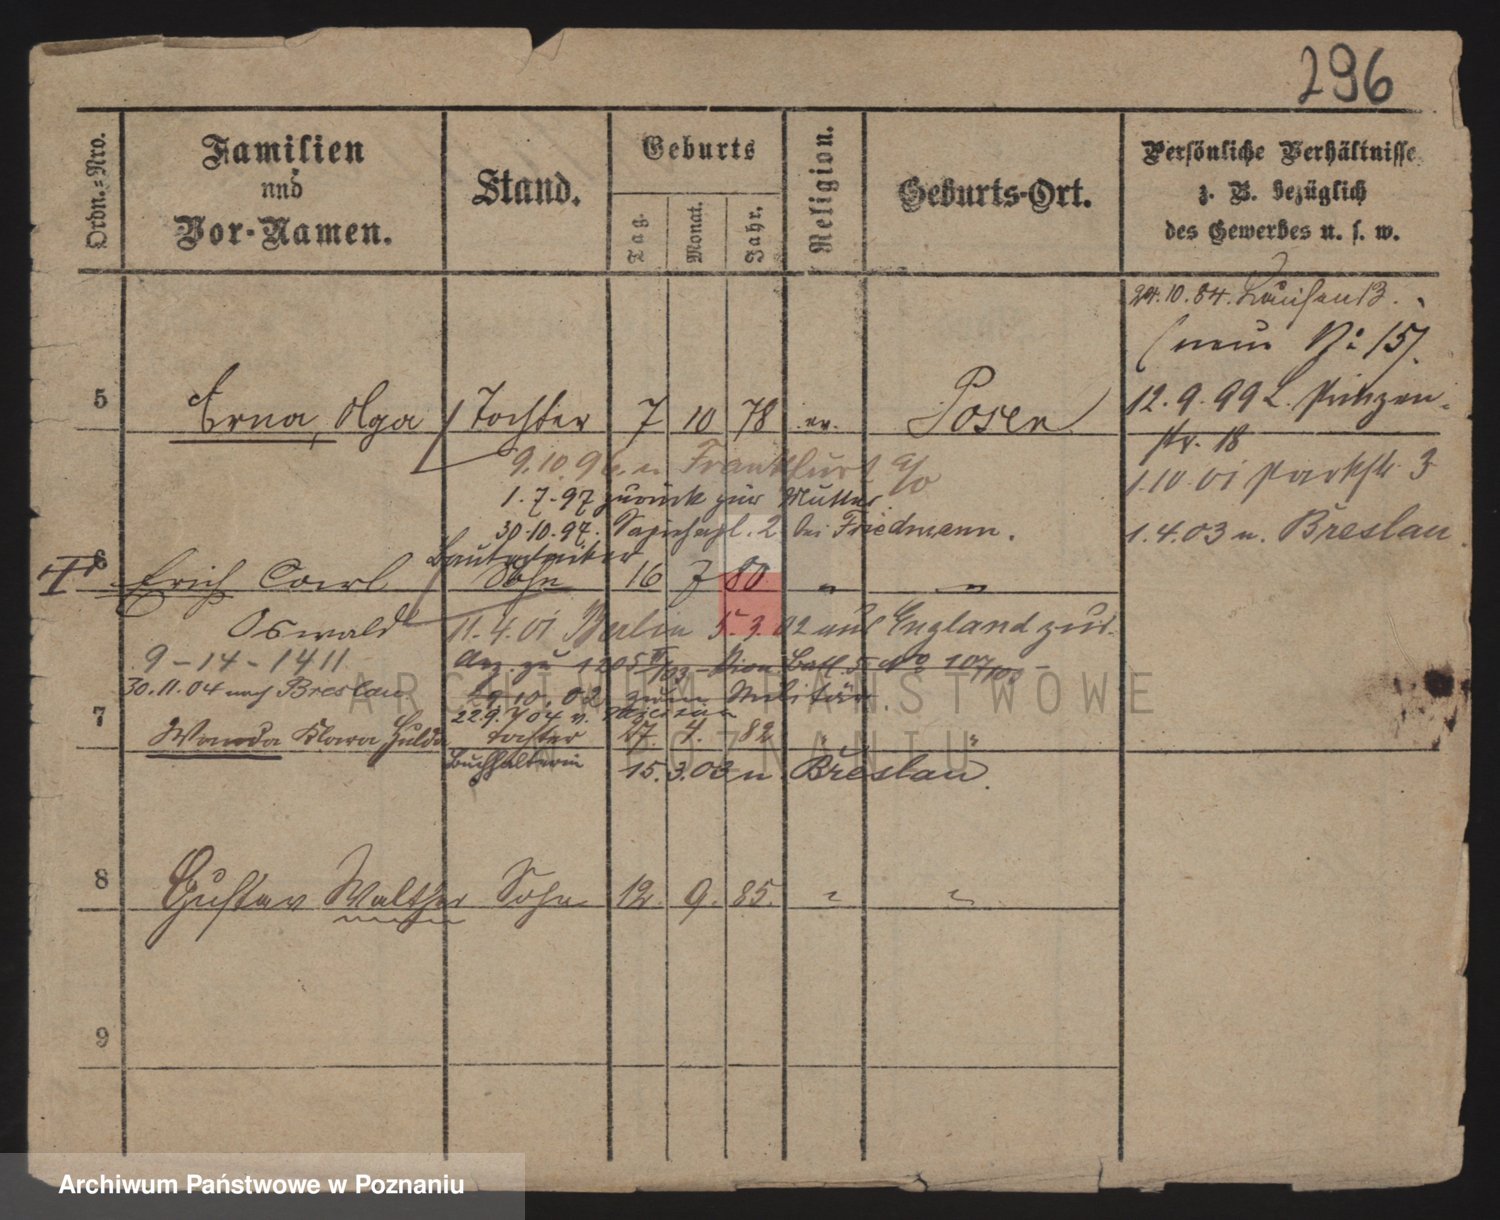 296
Ordn.-Nro.
Familien
und
Vor-Namen.
Stand.
Geburts
Tag.
Monat.
Jahr.
Religion.
Geburts-Ort.
Persönliche Verhältnisse
z. B. bezüglich
des Gewerbes u. s. w.
24.10.84.
(neue No 15).
5 Erna, Olga Tochter 7 10 78 ev. Posen
12.9.99 L. Prinzen-
str. 18
9.10.96. n. Frankfurt a/O
1.7.97 zurück zur Mutter
1.10.01 Parkstr. 3
30.10.97. Sapiehapl. 2 bei Friedmann.
1.4.03 n. Breslau.
6 Erich Carl Sohn 16 7 80 " "
Oswald
11.4.01 Berlin 5.3.02 aus England zur.
9-14-1411
30.11.04 nach Breslau
10.02 zum Militär.
22.9.04 n.
7 Wanda Klara Hulda Tochter 27. 4. 82 " "
Buchhalterin 15.3.03 n. Breslau.
8 Gustav Walther Sohn 12. 9. 85. " "
9
ARCHIWUM PAŃSTWOWE
W POZNANIU
Archiwum Państwowe w Poznaniu